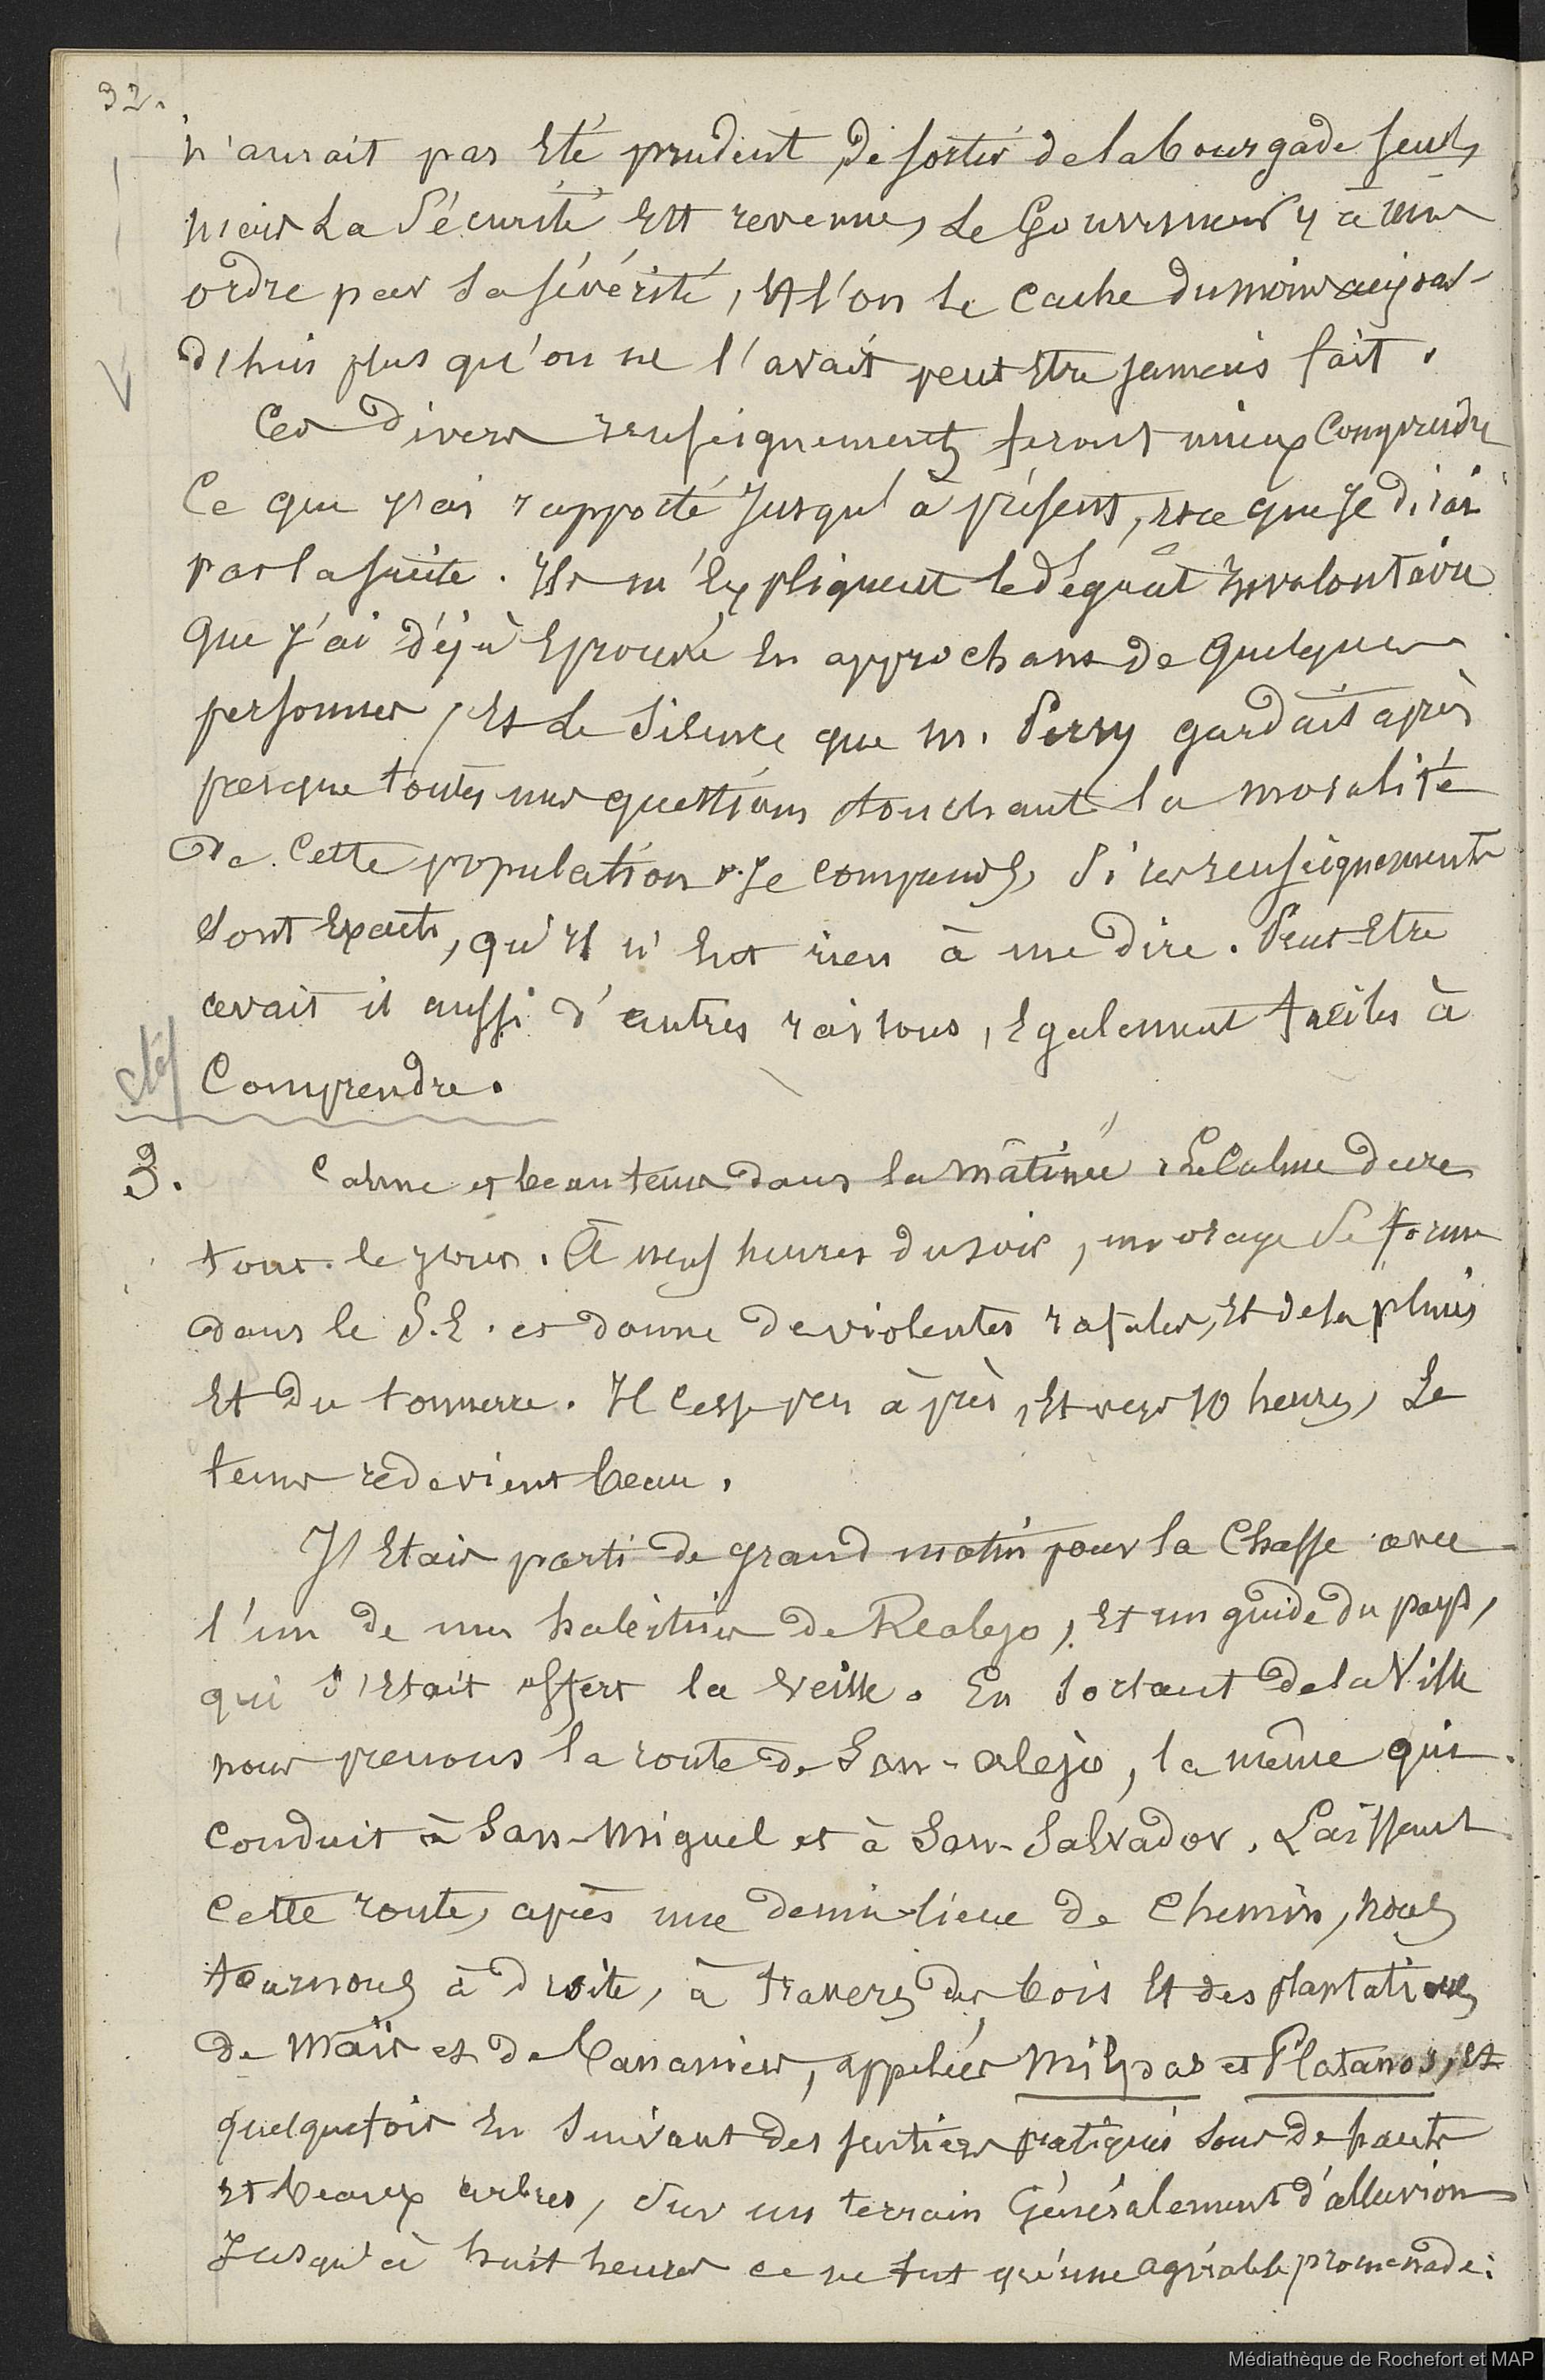 32.
n'aurait pas Eté prudent de sortir de la bourgade seul,
mais La Sécurité Est revenue, Le Gouverneur y à mis
ordre par sa sévérité, Et l'on se cache du moins aujour-
d'hui plus qu'on ne l'avait peut Etre jamais fait.
Ces divers renseignements feront mieux Comprendre
Ce que j'ai rapporté Jusqu'à présent, et ce que Je dirai
par la suite. Ils m'Expliquent le dégoût Involontaire
que J'ai déjà Eprouvé En approchant de quelques
personnes, Et Le Silence que M. Perry gardait après
presque toutes mes questions touchant la moralité
de Cette population. Je comprends, Si ces renseignements
Sont Exacts, qu'Il n'Eut rien à me dire. Peut-Etre
avait il aussi d'autres raisons, Egalement faciles à
Comprendre.
3. Calme et beau tems dans la matinée. Le Calme dure
tout le jour. À neuf heures du soir, un orage se forme
dans le S.E. et donne de violentes rafales, Et de la pluie
Et du tonnerre. Il cesse peu àprès, Et vers 10 heures, Le
tems redevient beau.
J'Etais parti de grand matin pour la Chasse avec
l'un de mes habitués de Realejo, Et un guide du pays,
qui s'Etait offert la veille. En Sortant de la Ville
nous prenons la route de San-Alejo, la même qui
Conduit à San-Miguel et à San-Salvador. Laissant
Cette route, après une demi-lieue de Chemin, nous
tournons à droite, à travers des bois Et des plantations
de Maïs et de bananiers, appelées Milpas et Platanos, Et
quelquefois En Suivant des sentiers pratiqués Sous de hauts
et beaux arbres, Sur un terrain Généralement d'alluvion
Jusqu'à huit heures ce ne fut qu'une agréable promenade.
Médiathèque de Rochefort et MAP